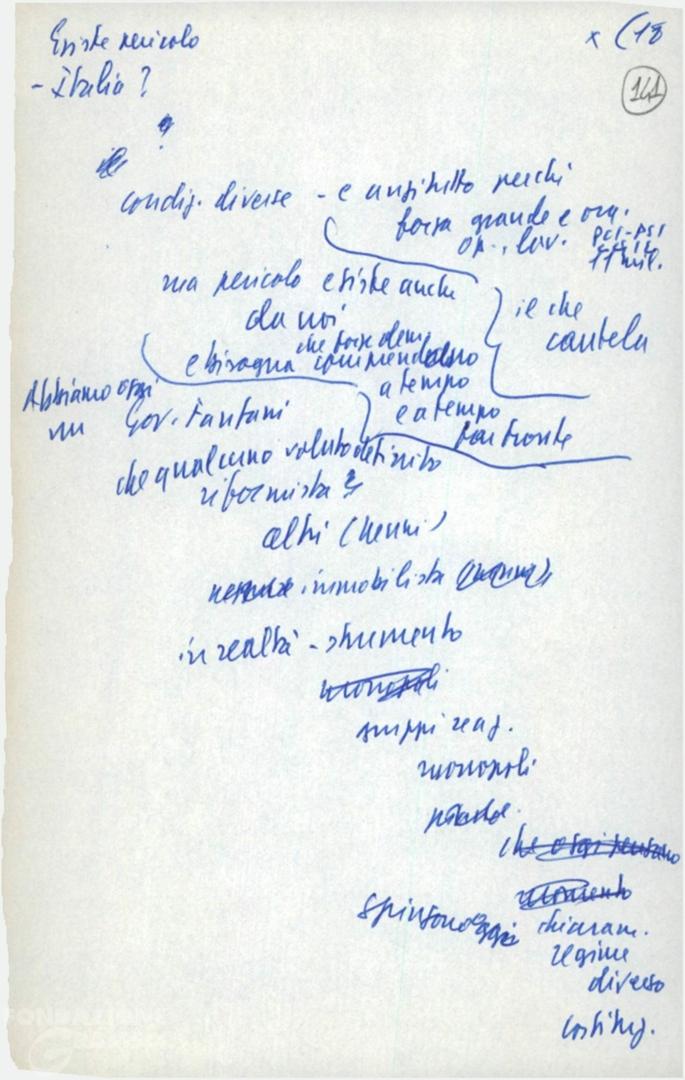 Esiste pericolo
x (18
- Italia?
141
?
condiz. diverse - e anzitutto perchi
forza grande e org.
op., lav. PCI-PSI
ma pericolo esiste anche
da noi
il che
cautela
e bisogna comprenderlo
che forze dem.
a tempo
e a tempo
far fronte
Abbiamo oggi
un Gov. Fanfani
che qualcuno voluto definito
riformista
altri (Nenni)
immobilista
in realtà - strumento
monopoli
gruppi reaz.
monopoli
che oggi pensano
momento
spingono oggi chiaram.
regime
diverso
costituz.
FONDAZIONE